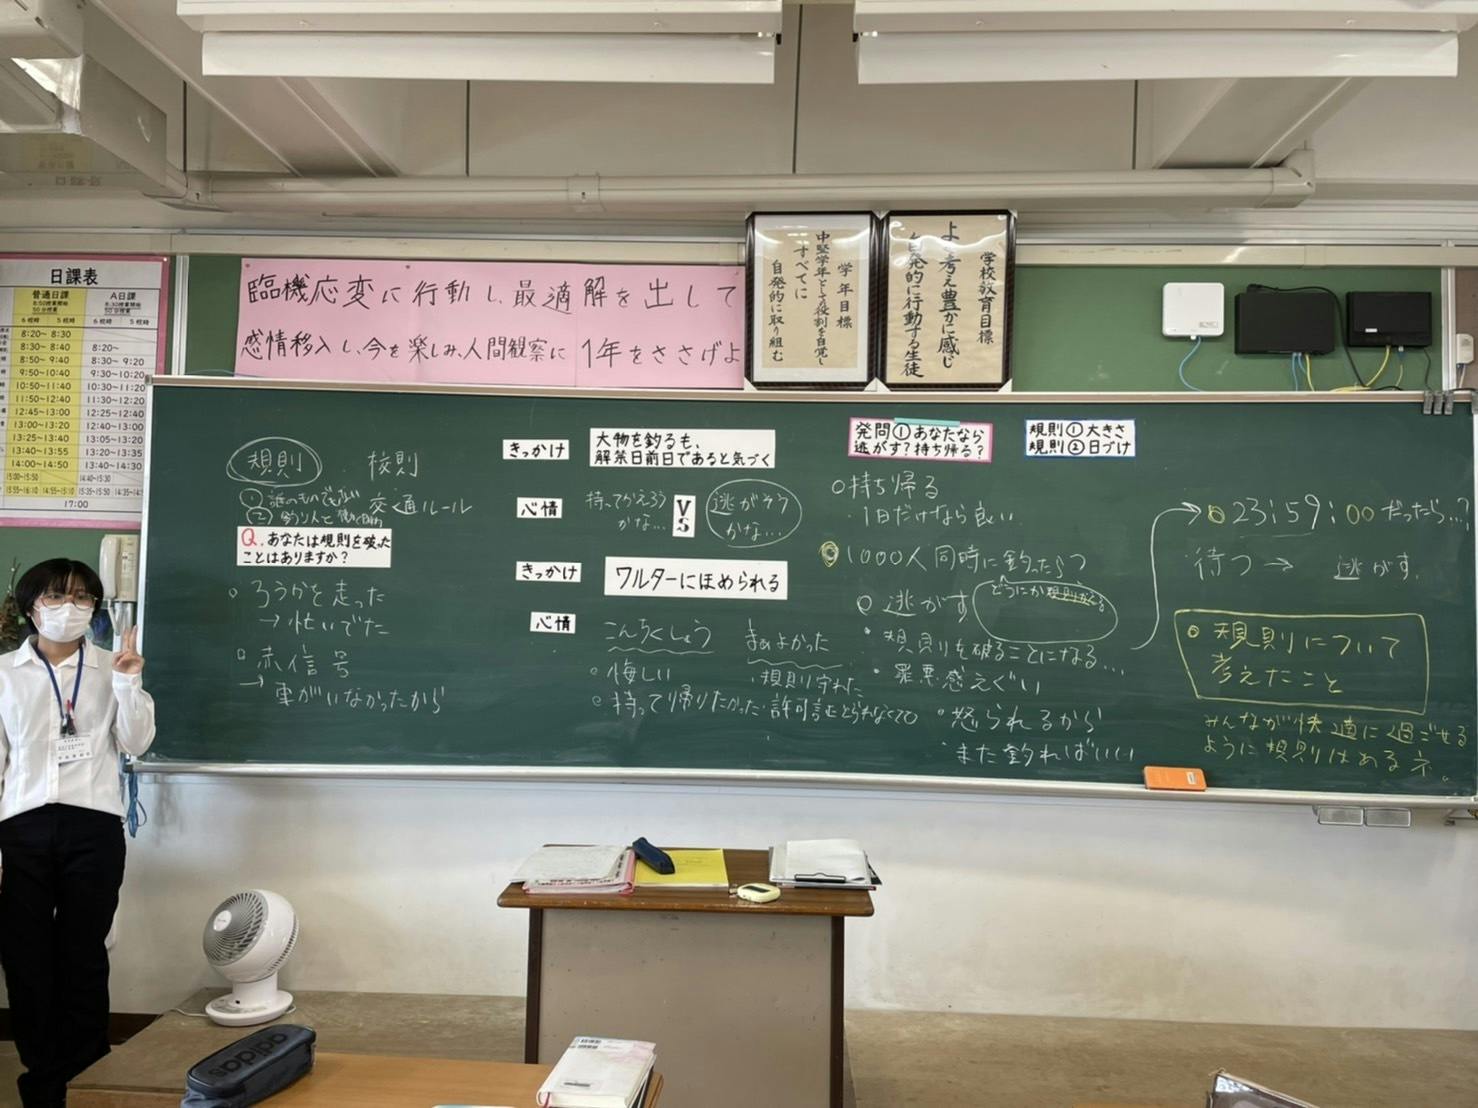 日課表
普通日課
8:50授業開始
50分授業
A日課
8:30授業開始
50分授業
6校時 5校時
6校時 5校時
8:20～ 8:30
8:30～ 8:40
8:20～
8:50～ 9:40
8:30～ 9:20
9:50～10:40
9:30～10:20
10:50～11:40
10:30～11:20
11:50～12:40
11:30～12:20
12:45～13:00
12:25～12:40
13:00～13:20
12:40～13:00
13:25～13:40
13:05～13:20
13:50～14:40
12:45～13:35
13:20～13:35
14:00～14:50
13:40～14:30
15:00～15:50
14:40～15:30
17:00
臨機応変に行動し、最適解を出して
感情移入し、今を楽しみ、人間観察に 1年をささげよ
学年目標
中堅学年としての役割を自覚し
すべてに
自発的に取り組む
学校教育目標
よく考え豊かに感じ
自発的に行動する生徒
規則 校則
① 誰のものでもない
交通ルール
②
Q. あなたは規則を破った
ことはありますか?
ろうかを走った
→忙いでた
赤信号
→車がいなかったから
きっかけ
大物を釣るも、
解禁日前日であると気づく
心情
持ってかえろう
かな…
VS
逃がそう
かな…
きっかけ
ワルターにほめられる
心情
こんちくしょう
・悔しい
・持って帰りたかった
まぁよかった
・規則守れた
・許可証とられなくて
発問①あなたなら
逃がす?持ち帰る?
規則①大きさ
規則②日づけ
○持ち帰る
・1日だけなら良い
1000人同時に釣ったら?
○逃がす
・規則を破ることになる…
・罪悪感えぐい
・怒られるから
・また釣ればいい
23:59:00だったら…?
待つ→ 逃がす。
規則について
考えたこと
みんなが快適に過ごせる
ように規則はあるネ。
adidas